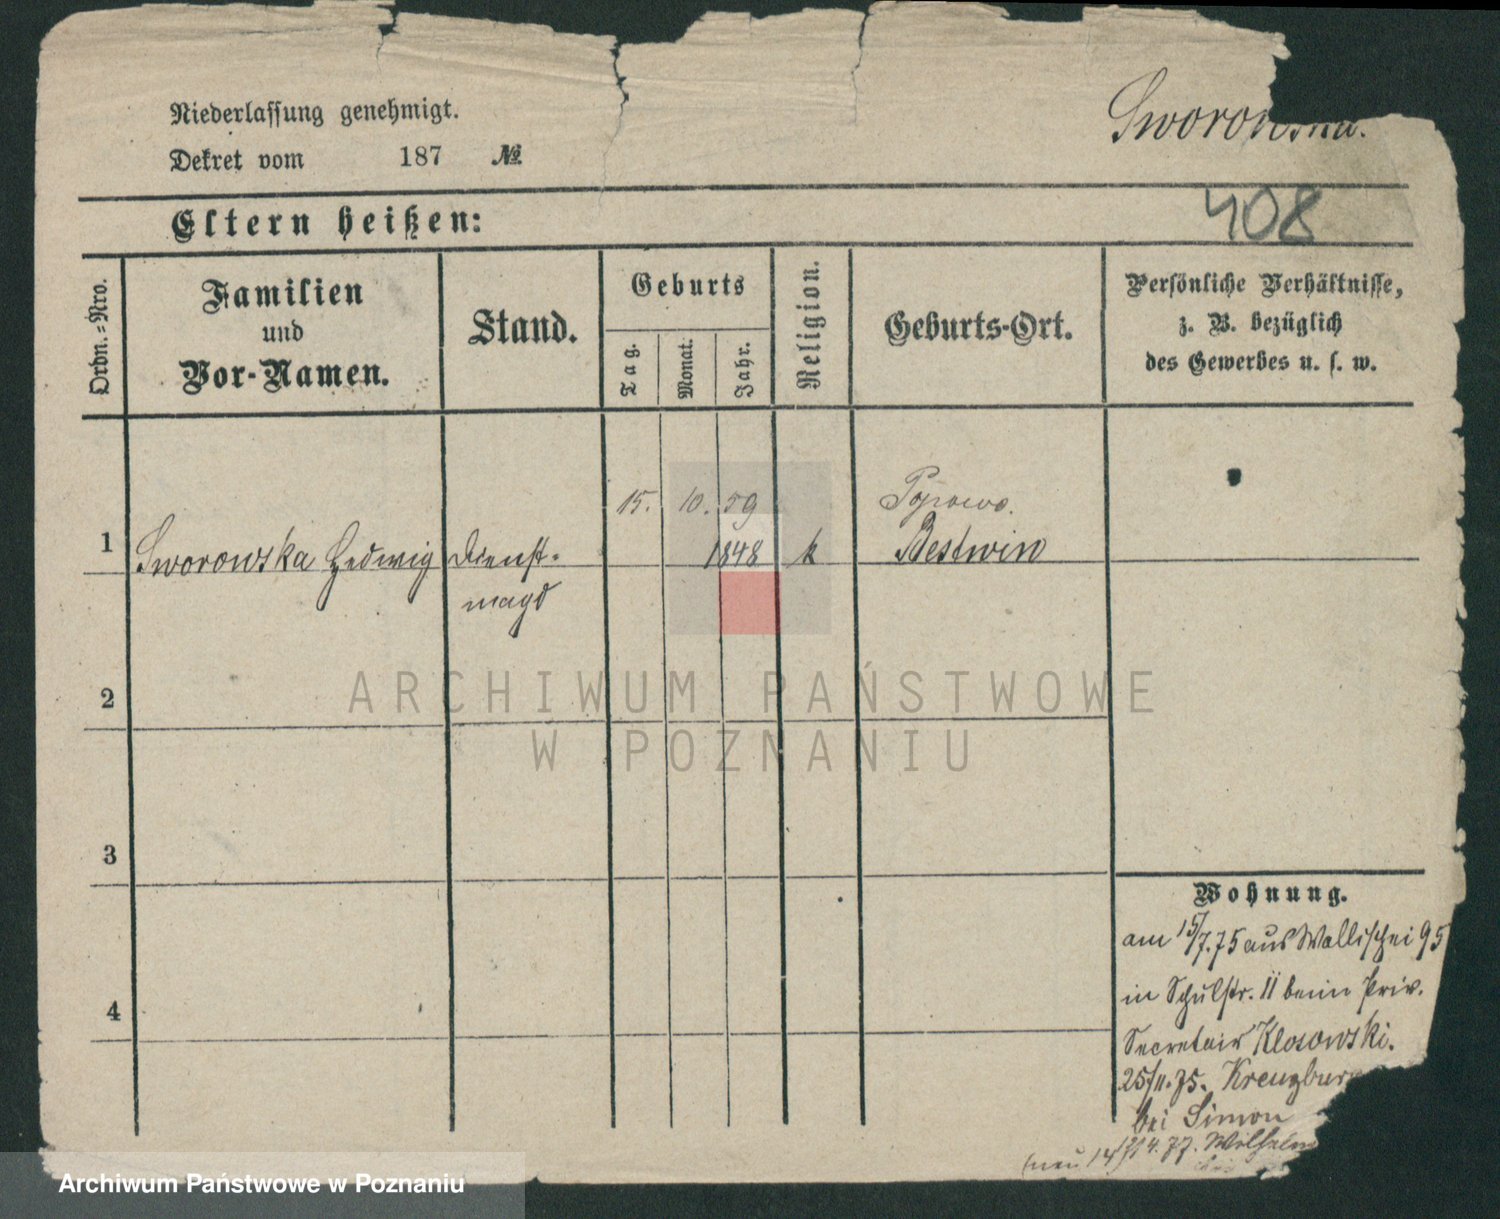 Niederlassung genehmigt.
Dekret vom 187 №
Sworowska.
408
Eltern heißen:
Ordn.=Nro.
Familien
und
Vor-Namen.
Stand.
Geburts
Tag.
Monat.
Jahr.
Religion.
Geburts-Ort.
Persönliche Verhältnisse,
z. B. bezüglich
des Gewerbes u. s. w.
15. 10. 59
1 Sworowska Hedwig Dienst-
magd
1848 k Bestwin
2
3
4
Wohnung.
am 15/7.75 aus Wallischei 95
in Schulstr. 11 beim Priv.
Secretair Klosowski.
25/11.75. Kreuzbur
bei Simon
4.77. Wilhelm
ARCHIWUM PAŃSTWOWE
W POZNANIU
Archiwum Państwowe w Poznaniu